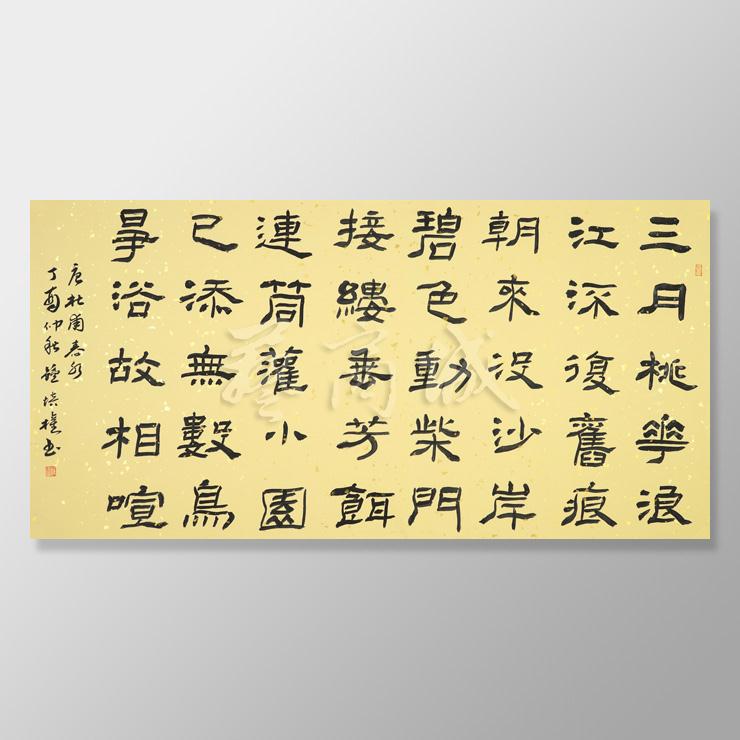 三月桃華浪
江深復舊痕
朝來沒沙岸
碧色動柴門
接縷垂芳餌
連筒灌小園
已添無數鳥
爭浴故相喧
唐杜甫春水
丁酉仲秋 培權书
藝商城